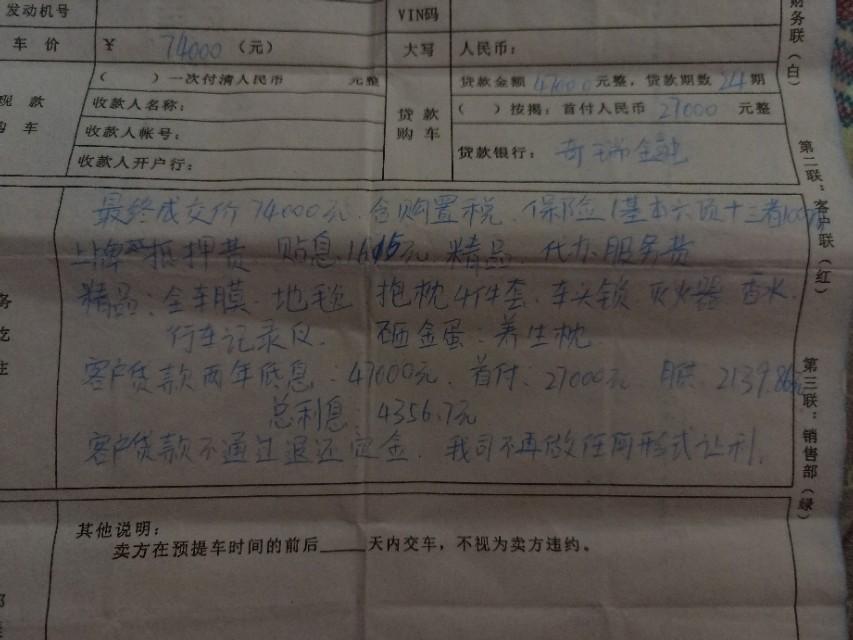 发动机号 VIN码
车价 ¥ 74000 (元) 大写 人民币:
( ) 一次付清人民币 元整 贷款金额 47000 元整, 贷款期数 24 期
现款购车 收款人名称: 贷款购车 ( ) 按揭: 首付人民币 27000 元整
收款人帐号:
收款人开户行: 贷款银行: 奇瑞金融
最终成交价 74000元、含购置税、保险(基本六项十三者100万
上牌 抵押费 贴息 元 精品、代办服务费
精品: 全车膜、地毯 抱枕4件套、车头锁 灭火器 香水、
行车记录仪、 砸金蛋: 养生枕
客户贷款两年低息: 47000元、首付: 27000元 月供: 2139.86元
总利息: 4356.7元
客户贷款不通过退还定金、我司不再做任何形式让利.
其他说明:
卖方在预提车时间的前后____天内交车,不视为卖方违约。
财务联(白)
第二联:客户联(红)
第三联:销售部(绿)